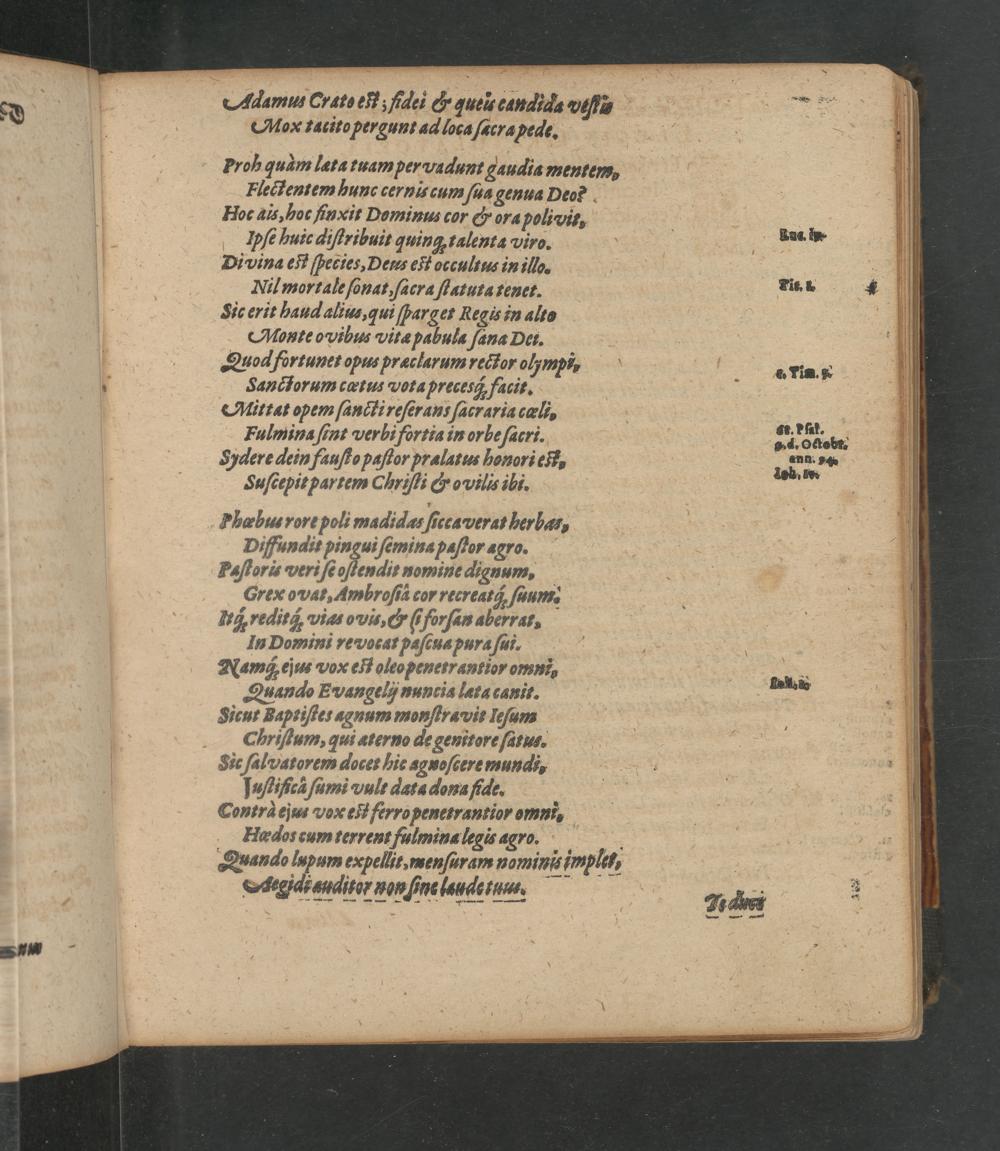 Adamus Crato est; fidei & queîs candida vestis
Mox tacito pergunt ad loca sacra pede.
Proh quàm læta tuam pervadunt gaudia mentem,
Flectentem hunc cernis cum sua genua Deo?
Hoc ais, hoc finxit Dominus cor & ora polivit,
Ipse huic distribuit quinq; talenta viro.
Divina est species, Deus est occultus in illo.
Nil mortale sonat, sacra statuta tenet.
Tit. 1.
Sic erit haud alius, qui sparget Regis in alto
Monte ovibus vitæ pabula sana Dei.
Quod fortunet opus præclarum rector olympi,
Sanctorum cœtus vota precesq́; facit.
Mittat opem sancti reserans sacraria cœli,
Fulmina sint verbi fortia in orbe sacri.
Sydere dein fausto pastor prælatus honori est,
Suscepit partem Christi & ovilis ibi.
Phœbus rore poli madidas siccaverat herbas,
Diffundit pingui semina pastor agro.
Pastoris veri se ostendit nomine dignum,
Grex ovat, Ambrosiâ cor recreatq́; suum.
Itq́; reditq́; vias ovis, & si forsan aberrat,
In Domini revocat pascua pura sui.
Namq́; ejus vox est oleo penetrantior omni,
Quando Evangelij nuncia læta canit.
Sicut Baptistes agnum monstravit Iesum
Christum, qui æterno de genitore satus.
Sic salvatorem docet hic agnoscere mundi,
Justificâ sumi vult data dona fide.
Contrà ejus vox est ferro penetrantior omni,
Hœdos cum terrent fulmina legis agro.
Quando lupum expellit, mensuram nominis implet,
Aegidi auditor non sine laude tuus.
Te duci